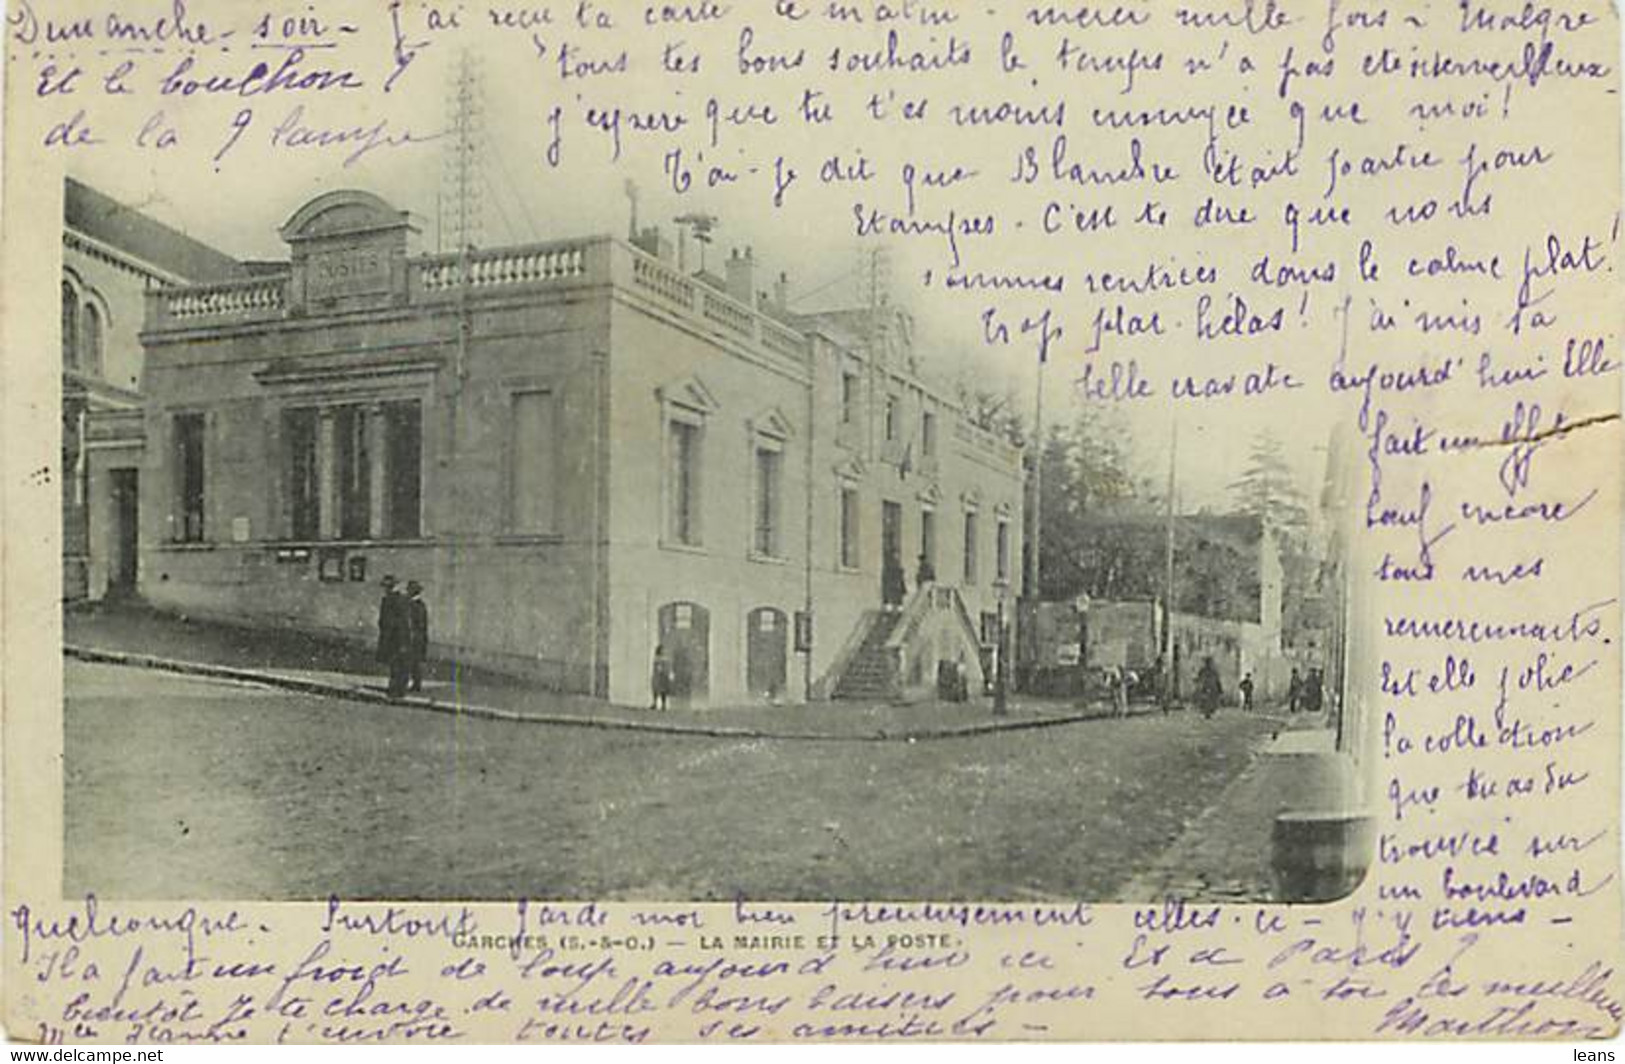 Dimanche - soir - J'ai reçu ta carte ce matin - merci mille fois - Malgré
tous tes bons souhaits le temps n'a pas été merveilleux
Et le bouchon ?
de la lampe
j'espère que tu t'es moins ennuyée que moi !
T'ai-je dit que Blanche était partie pour
Etampes - C'est te dire que nous
sommes rentrées dans le calme plat !
Trop plat - hélas ! J'ai mis ta
belle cravate aujourd'hui Elle
fait un effet
boeuf encore
tous mes
remerciements.
Est elle jolie
la collection
que tu as du
trouvée sur
un boulevard
POSTES
quelconque. Surtout garde moi bien précieusement celles-ci - J'y tiens -
GARCHES (S.-&-O.) — LA MAIRIE ET LA POSTE.
Il a fait un froid de loup aujourd'hui ici Et à Paris ?
bientôt Je te charge de mille bons baisers pour tous à toi les meilleurs
Mlle Jeanne t'envoie toutes ses amitiés -
Marthon
leans